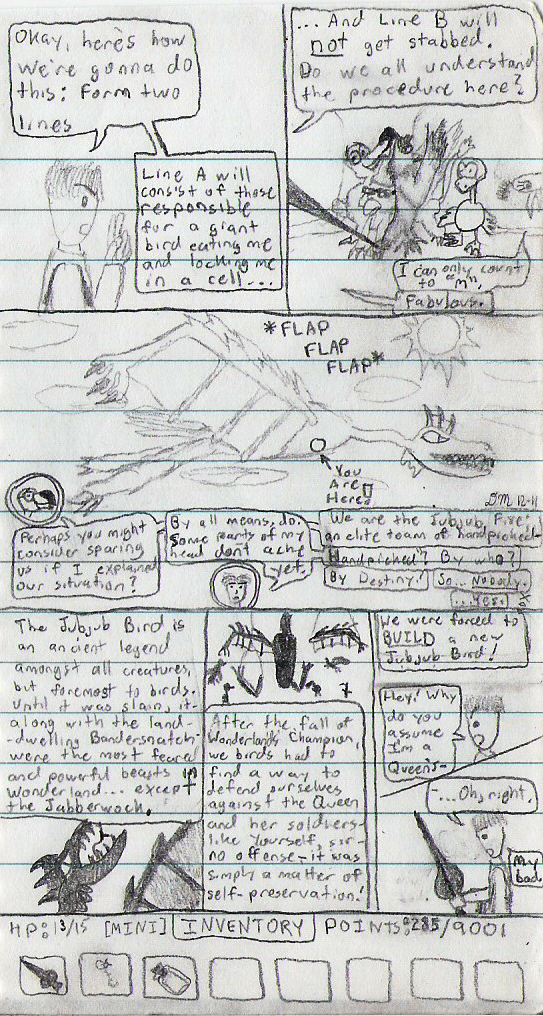 Okay, here's how
we're gonna do
this: Form two
lines
Line A will
consist of those
responsible
for a giant
bird eating me
and locking me
in a cell...
... And Line B will
not get stabbed.
Do we all understand
the procedure here?
I can only count
to "m",
Fabulous.
*FLAP
FLAP
FLAP*
You
Are
Here!
BM 12-11
Perhaps you might
consider sparing
us if I explained
our situation?
By all means, do.
Some parts of my
head don't ache
yet.
We are the Jubjub Five:
an elite team of handpicked-
Handpicked? By who?
By Destiny!
So... Nobody.
...Yes.
The Jubjub Bird is
an ancient legend
amongst all creatures,
but foremost to birds.
Until it was slain, it
along with the land-
-dwelling Bandersnatch
were the most feared
and powerful beasts in
Wonderland... except
the Jabberwock.
After the fall of
Wonderland's Champion,
we birds had to
find a way to
defend ourselves
against the Queen
and her soldiers-
like yourself, sir-
no offense- it was
simply a matter of
self-preservation!
We were forced to
BUILD a new
Jubjub Bird!
Hey! Why
do you
assume
I'm a
Queen's-
-...Oh, right.
My
bad.
HP: 13/15 [MINI] INVENTORY POINTS: 285/9001